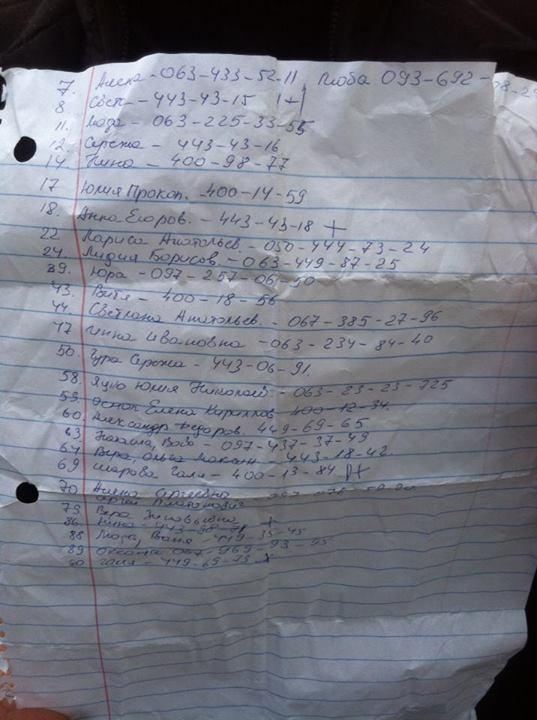 7. Алеха - 063-433-52-11 Люба 093-692-
8 Свет - 443-43-15 |+|
11. Надя - 063-225-33-55
12. Сережа - 443-43-16
14 Нина - 400-98-77
17 Юлия Прокоп. - 400-14-59
18. Анна Егоров. - 443-43-18 +
22 Лариса Анатольев - 050-444-73-24
24. Лидия Борисов. - 063-449-87-25
39. Юра - 097-257-06-50
43. Витя - 400-18-56
44. Светлана Анатольев. - 067-385-27-96
47 Инна Ивановна - 063-234-84-40
50. Гура Сережа - 443-06-91
58. Яцко Юлия Николаев - 063-23-23-725
59. Елена Кириллов 400-12-34
60. Александр Федоров. 449-69-65
63 Вова - 097-437-37-49
64 Вера, Ольга Максим 443-18-42
69 Галя - 400-13-84 +
70. Сергеевна
Сергей Платонович
79 Вера Зиновьевна +
86 Нина - 443-
88 Ваня - 449-35-45
89 Оксана 067-969-93-95
90 Галя - 449-69-73 +